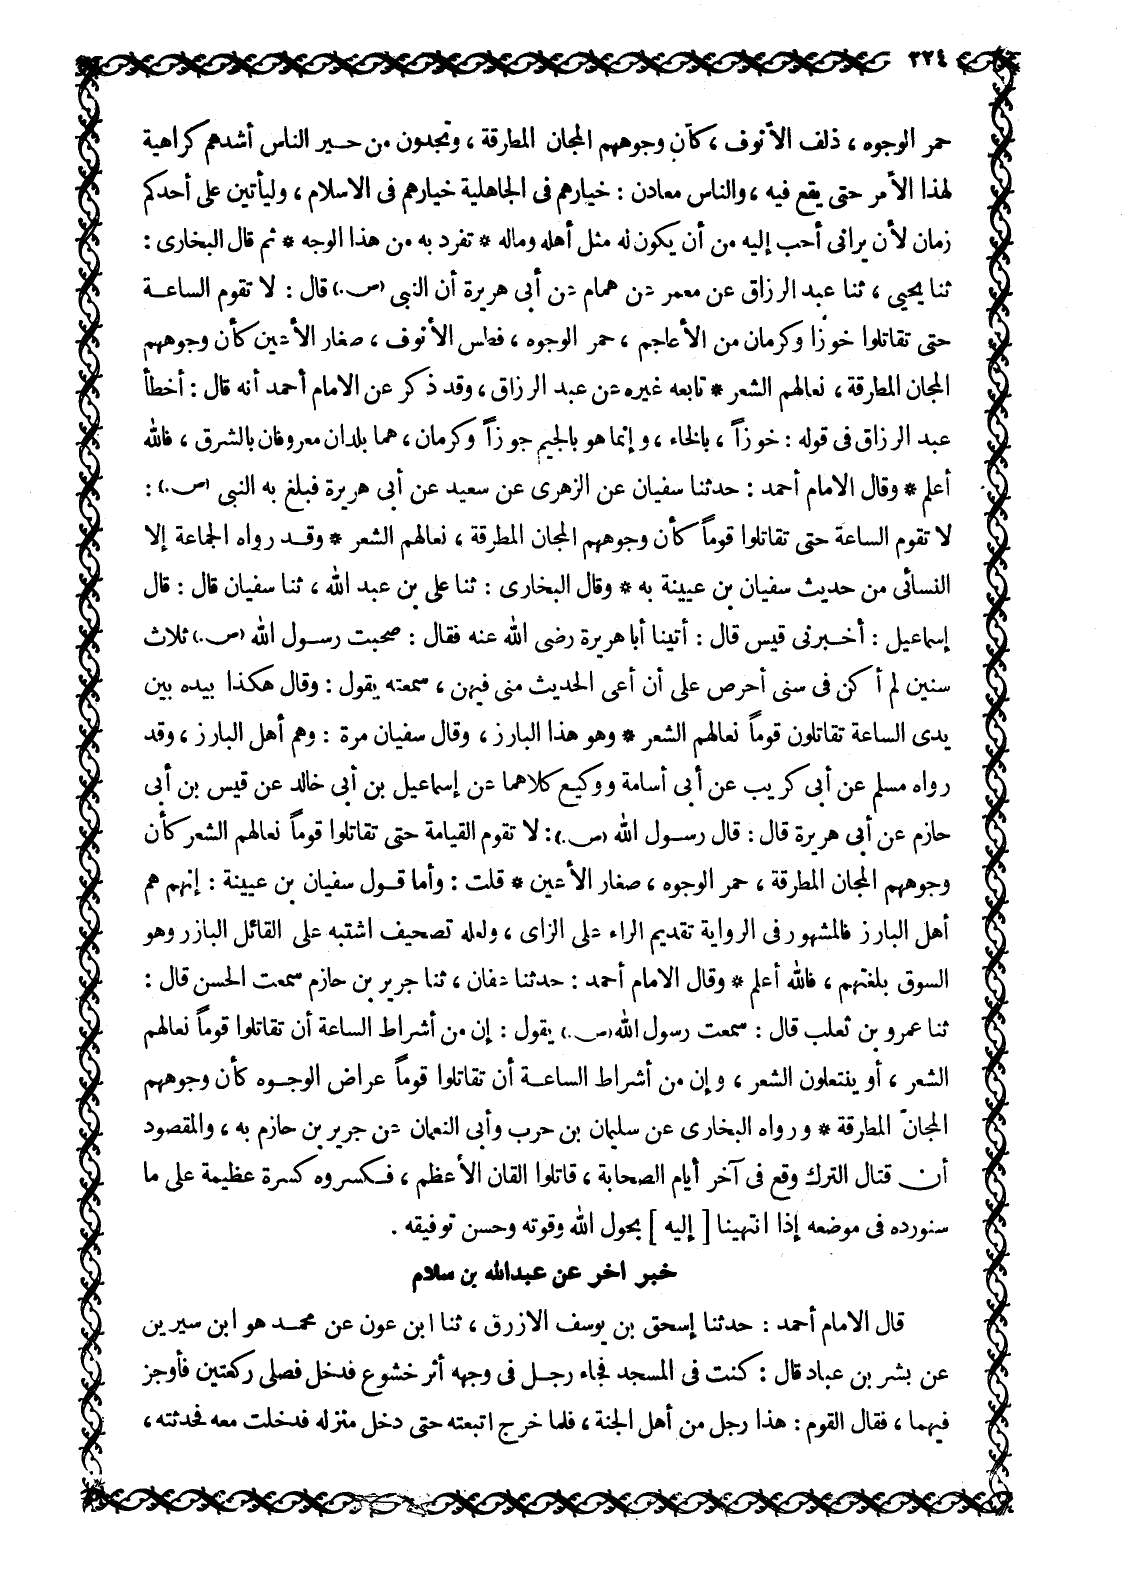 ٢٢٤
حمر الوجوه ، ذلف الأنوف ، كأن وجوههم المجان المطرقة ، وتجدون من خير الناس أشدهم كراهية
لهذا الأمر حتى يقع فيه ، والناس معادن : خيارهم فى الجاهلية خيارهم فى الاسلام ، وليأتين على أحدكم
زمان لأن يرانى أحب إليه من أن يكون له مثل أهله وماله * تفرد به من هذا الوجه * ثم قال البخارى :
ثنا يحيى ، ثنا عبد الرزاق عن معمر عن همام عن أبى هريرة أن النبى (ص.) قال : لا تقوم الساعة
حتى تقاتلوا خوزا وكرمان من الأعاجم ، حمر الوجوه ، فطس الأنوف ، صغار الأعين كأن وجوههم
المجان المطرقة ، نعالهم الشعر * تابعه غيره عن عبد الرزاق ، وقد ذكر عن الامام أحمد أنه قال : أخطأ
عبد الرزاق فى قوله : خوزاً ، بالخاء ، وإنما هو بالجيم جوزاً وكرمان ، هما بلدان معروفان بالشرق ، فالله
أعلم * وقال الامام أحمد : حدثنا سفيان عن الزهرى عن سعيد عن أبى هريرة فبلغ به النبى (ص.) :
لا تقوم الساعة حتى تقاتلوا قوماً كأن وجوههم المجان المطرقة ، نعالهم الشعر * وقد رواه الجماعة إلا
النسائى من حديث سفيان بن عيينة به * وقال البخارى : ثنا على بن عبد الله ، ثنا سفيان قال : قال
إسماعيل : أخبرنى قيس قال : أتينا أبا هريرة رضى الله عنه فقال : صحبت رسول الله (ص.) ثلاث
سنين لم أكن فى سنى أحرص على أن أعى الحديث منى فيهن ، سمعته يقول : وقال هكذا بيده بين
يدى الساعة تقاتلون قوماً نعالهم الشعر * وهو هذا البارز ، وقال سفيان مرة : وهم أهل البارز ، وقد
رواه مسلم عن أبى كريب عن أبى أسامة ووكيع كلاهما عن إسماعيل بن أبى خالد عن قيس بن أبى
حازم عن أبى هريرة قال : قال رسول الله (ص.) : لا تقوم القيامة حتى تقاتلوا قوماً نعالهم الشعر كأن
وجوههم المجان المطرقة ، حمر الوجوه ، صغار الأعين * قلت : وأما قول سفيان بن عيينة : إنهم هم
أهل البارز فالمشهور فى الرواية تقديم الراء على الزاى ، ولعله تصحيف اشتبه على القائل البازر وهو
السوق بلغتهم ، فالله أعلم * وقال الامام أحمد : حدثنا عفان ، ثنا جرير بن حازم سمعت الحسن قال :
ثنا عمرو بن ثعلب قال : سمعت رسول الله (ص.) يقول : إن من أشراط الساعة أن تقاتلوا قوماً نعالهم
الشعر ، أو ينتعلون الشعر ، وإن من أشراط الساعة أن تقاتلوا قوماً عراض الوجوه كأن وجوههم
المجانّ المطرقة * ورواه البخارى عن سليمان بن حرب وأبى النعمان عن جرير بن حازم به ، والمقصود
أن قتال الترك وقع فى آخر أيام الصحابة ، قاتلوا القان الأعظم ، فكسروه كسرة عظيمة على ما
سنورده فى موضعه إذا انتهينا [ إليه ] بحول الله وقوته وحسن توفيقه .
خبر اخر عن عبدالله بن سلام
قال الامام أحمد : حدثنا إسحق بن يوسف الازرق ، ثنا ابن عون عن محمد هو ابن سيرين
عن بشر بن عباد قال : كنت فى المسجد فجاء رجل فى وجهه أثر خشوع فدخل فصلى ركعتين فأوجز
فيهما ، فقال القوم : هذا رجل من أهل الجنة ، فلما خرج اتبعته حتى دخل منزله فدخلت معه فحدثته ،